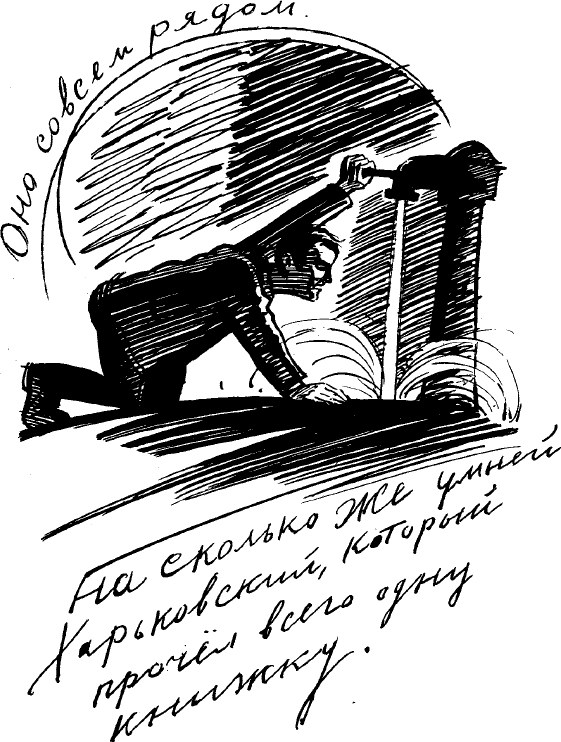 Оно совсем рядом.
На сколько же умней
Харьковский, который
прочёл всего одну
книжку.